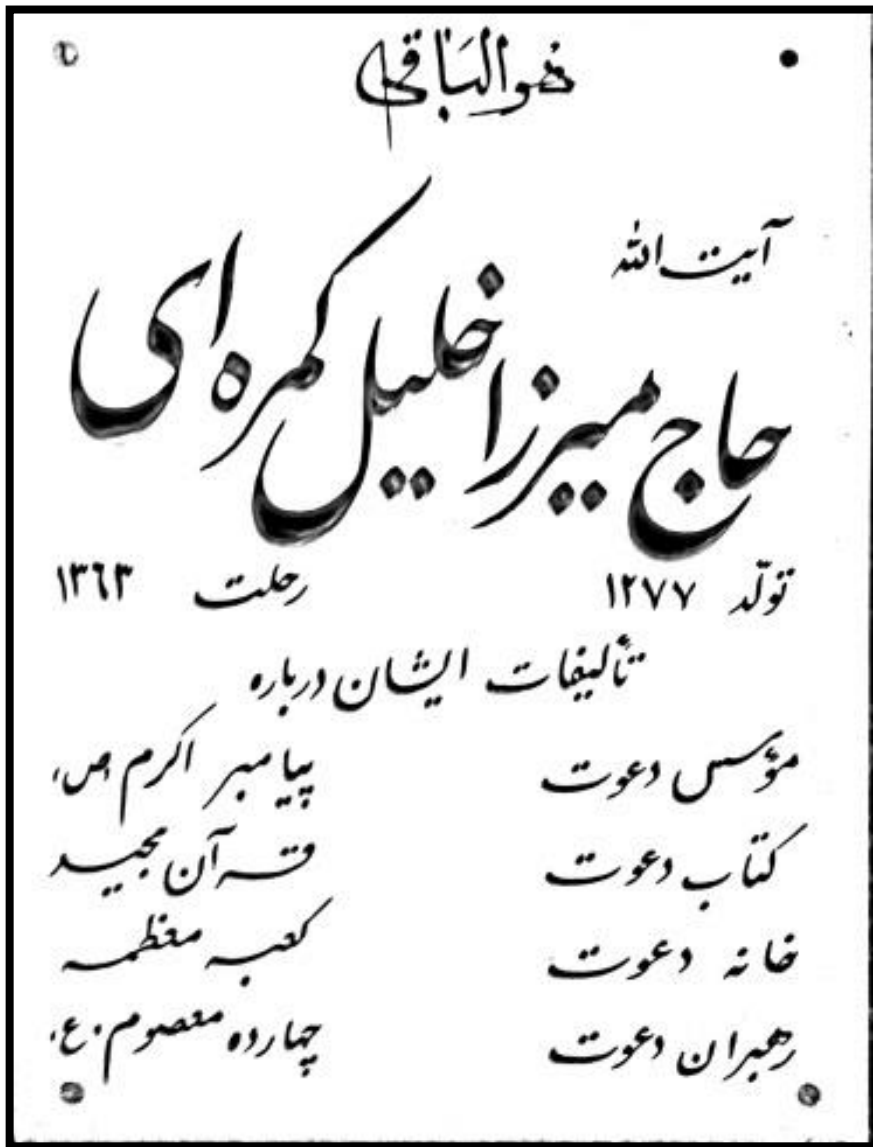 هوالباقی
آیت الله
حاج میرزا خلیل کمره ای
تولّد ۱۲۷۷ رحلت ۱۳۶۳
تألیفات ایشان درباره
مؤسس دعوت پیامبر اکرم (ص)
کتاب دعوت قرآن مجید
خانه دعوت کعبه معظمه
رهبران دعوت چهارده معصوم (ع)